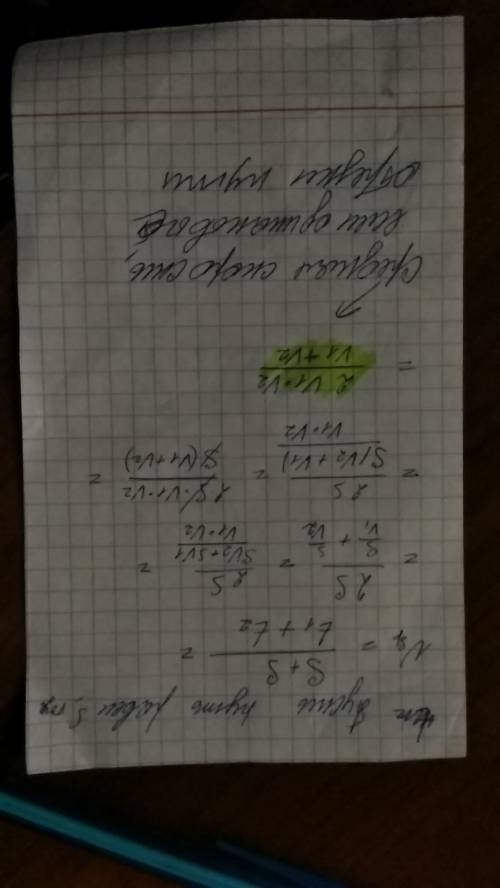 пусть путь равен S, тд
Vср = (S+S)/(t1 + t2) =
= 2S/(S/V1 + S/V2) = 2S/((SV2+SV1)/(V1·V2)) =
= 2S/(S(V2+V1)/(V1·V2)) = 2S·V1·V2/(S(V1+V2)) =
= 2V1·V2/(V1+V2)
средняя скорость,
если одинаковые
отрезки пути